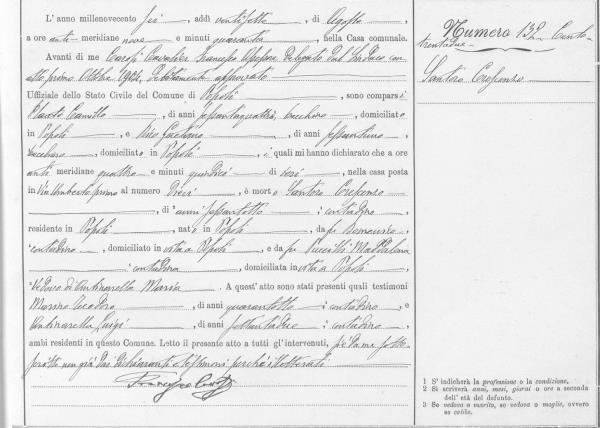 L'anno millenovecento sei, addì ventisette, di Agosto,
a ore anti meridiane nove e minuti quaranta, nella Casa comunale.
Avanti di me Carosi Cavalier Francesco Assessore Delegato dal Sindaco con
atto primo Ottobre, debitamente approvato
Uffiziale dello Stato Civile del Comune di Popoli, sono comparsi
Camillo, di anni sessantaquattro, domiciliato
in Popoli, e Gaetano, di anni sessantuno,
domiciliato in Popoli, i quali mi hanno dichiarato che a ore
anti meridiane quattro e minuti quindici di ieri, nella casa posta
in Via Umberto primo al numero Dieci, è morto Santoro Crescenzo
, di anni sessantotto, contadino,
residente in Popoli, nato in Popoli, da fu Domenico,
contadino, domiciliato in vita a Popoli, e da fu Maddalena
, contadina, domiciliata in vita a Popoli,
vedovo di Antinarella Maria. A quest'atto sono stati presenti quali testimoni
Marino Teodoro, di anni quarantotto, contadino, e
Antinarella Luigi, di anni settantadue, contadino,
ambi residenti in questo Comune. Letto il presente atto a tutti gl'intervenuti, è da me sotto-
scritto non già dai dichiaranti e testimoni perché illetterati
Francesco Carosi
Numero 132 Cento
trentadue
Santoro Crescenzo
1 S'indicherà la professione o la condizione.
2 Si scriverà anni, mesi, giorni o ore a seconda
dell'età del defunto.
3 Se vedovo o marito, se vedova o moglie, ovvero
se celibe.